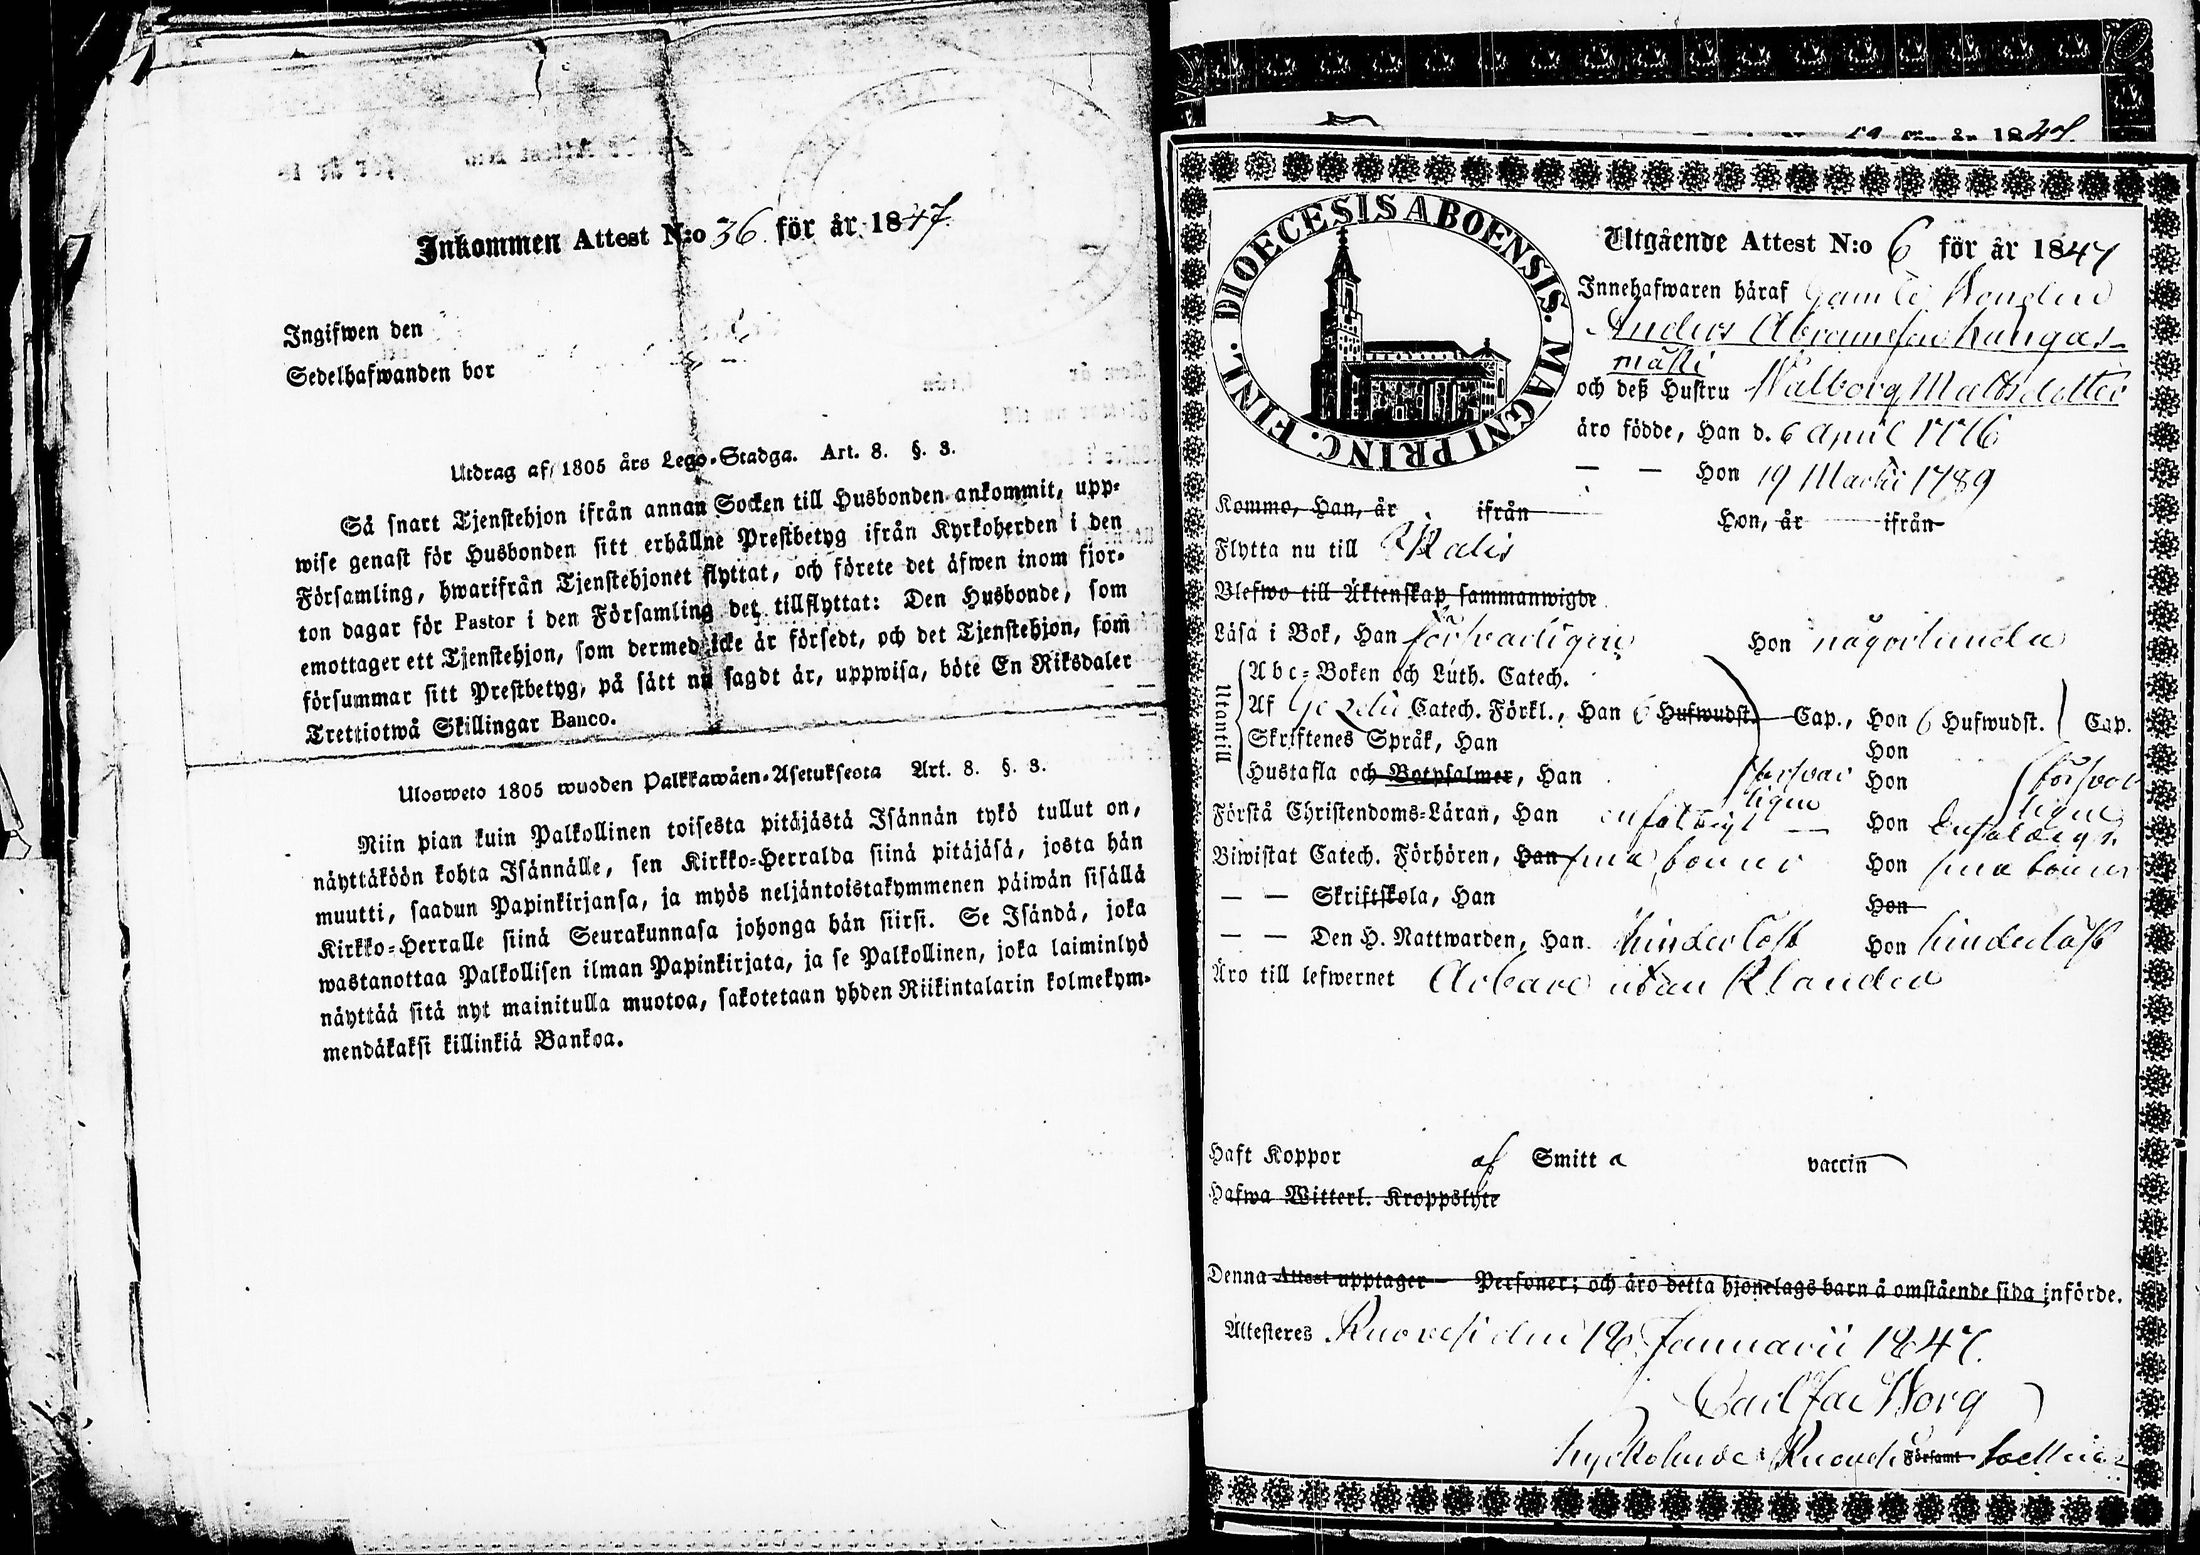 Inkommen Attest N:o 36 för år 1847.
Ingifwen den
Sedelhafwanden bor
Utdrag af 1805 års Lego-Stadga. Art. 8. §. 3.
Så snart Tjenstehjon ifrån annan Socken till Husbonden ankommit, upp-
wise genast för Husbonden sitt erhållne Prestbetyg ifrån Kyrkoherden i den
Församling, hwarifrån Tjenstehjonet flyttat, och förete det äfwen inom fjor-
ton dagar för Pastor i den Församling det tillflyttat: Den Husbonde, som
emottager ett Tjenstehjon, som dermed icke är försedt, och det Tjenstehjon, som
försummar sitt Prestbetyg, på sätt nu sagdt är, uppwisa, böte En Riksdaler
Trettiotwå Skillingar Banco.
Ulosweto 1805 wuoden Palkkawäen-Asetuksesta Art. 8. §. 3.
Niin pian kuin Palkollinen toisesta pitäjästä Isännän tykö tullut on,
näyttäköön kohta Isännälle, sen Kirkko-Herralda siinä pitäjäsä, josta hän
muutti, saadun Papinkirjansa, ja myös neljäntoistakymmenen päiwän sisällä
Kirkko-Herralle siinä Seurakunnasa johonga hän siirsi. Se Isändä, joka
wastanottaa Palkollisen ilman Papinkirjata, ja se Palkollinen, joka laiminlyö
näyttää sitä nyt mainitulla muotoa, sakotetaan yhden Riikintalarin kolmekym-
mendäkaksi killinkiä Bankoa.
för år 1847.
DIOECESIS ABOENSIS. MAGNI PRINC. FINL.
Utgående Attest N:o 6 för år 1847
Innehafwaren häraf Gamle Bonden
Anders Abramsson Kangas-
mäki
och deß Hustru Walborg Mattsdotter
äro födde, Han d. 6 April 1776
— — Hon 19 Martii 1789
Komme, Han, år ifrån Hon, år ifrån
Flytta nu till Ikalis
Blefwo till Äktenskap sammanwigde
Läsa i Bok, Han försvarligen Hon någorlunda
Utantill
Abc-Boken och Luth. Catech.
Af Catech. Förkl., Han 6 Hufwudst. Cap., Hon 6 Hufwudst. Cap.
Skriftenes Språk, Han Hon
Hustafla och Botpsalmer, Han försvarligen Hon försvarligen
Förstå Christendoms-Läran, Han enfaldigt Hon Enfaldigt
Biwistat Catech. Förhören, Han sina böner Hon sina böner
— — Skriftskola, Han Hon
— — Den H. Nattwarden, Han hinderlöst Hon hinderlöst
Äro till lefwernet Ärbare utan Klander
Haft Koppor af Smitta vaccin
Hafwa Witterl. Kroppslyte
Denna Attest upptager Personer; och äro detta hjonelags barn å omstående sida införde.
Attesteres Ruovesi den 18 Januarii 1847.
Carl Jac Borg
Kyrkoherde i Ruovesi Församl